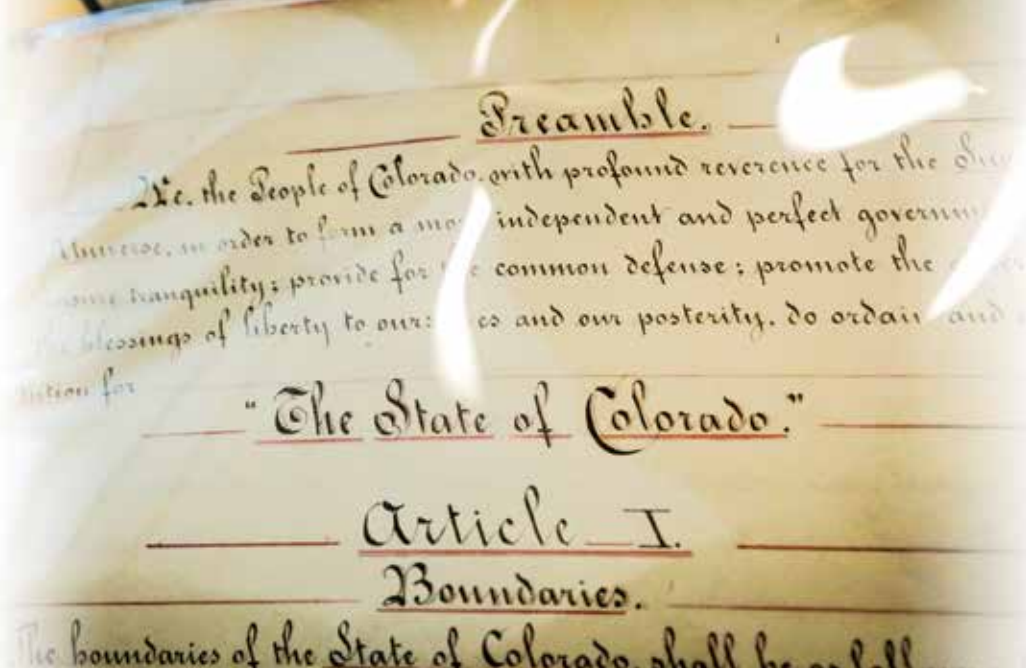 Preamble.
We, the People of Colorado, with profound reverence for the
Universe, in order to form a independent and perfect
tranquility; provide for common defense; promote the
blessings of liberty to and our posterity, do ordain and
for
"The State of Colorado."
Article I.
Boundaries.
The boundaries of the State of Colorado, shall be as